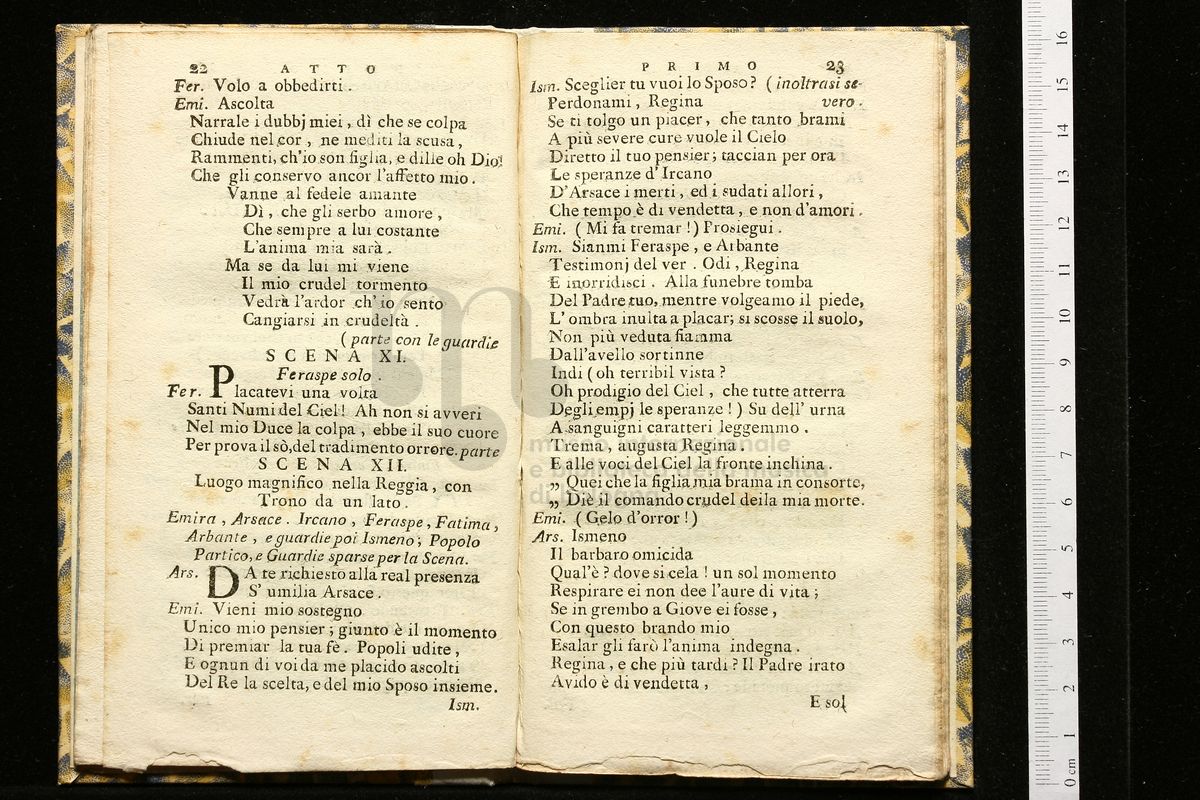 22 ATTO
Fer. Volo a obbedirti.
Emi. Ascolta
Narrale i dubbj miei, dì che se colpa
Chiude nel cor, ne mediti la scusa,
Rammenti, ch'io son figlia, e dille oh Dio!
Che gli conservo ancor l'affetto mio.
Vanne al fedele amante
Dì, che gli serbo amore,
Che sempre a lui costante
L'anima mia sarà.
Ma se da lui mi viene
Il mio crudel tormento
Vedrà l'ardor ch'io sento
Cangiarsi in crudeltà.
(parte con le guardie
SCENA XI.
Feraspe solo.
Fer. Placatevi una volta
Santi Numi del Ciel! Ah non si avveri
Nel mio Duce la colpa, ebbe il suo cuore
Per prova il sò, del tradimento orrore. parte
SCENA XII.
Luogo magnifico nella Reggia, con
Trono da un lato.
Emira, Arsace. Ircano, Feraspe, Fatima,
Arbante, e guardie poi Ismeno; Popolo
Partico, e Guardie sparse per la Scena.
Ars. DA te richiesto alla real presenza
S'umilia Arsace.
Emi. Vieni mio sostegno
Unico mio pensier; giunto è il momento
Di premiar la tua fè. Popoli udite,
E ognun di voi da me placido ascolti
Del Re la scelta, e del mio Sposo insieme.
Ism.
PRIMO 23
Ism. Sceglier tu vuoi lo Sposo? (inoltrasi se-
Perdonami, Regina vero.
Se ti tolgo un piacer, che tanto brami
A più severe cure vuole il Cielo
Diretto il tuo pensier; taccian per ora
Le speranze d'Ircano
D'Arsace i merti, ed i sudati allori,
Che tempo è di vendetta, e non d'amori.
Emi. (Mi fa tremar!) Prosiegui.
Ism. Sianmi Feraspe, e Arbante
Testimonj del ver. Odi, Regina
E inorridisci. Alla funebre tomba
Del Padre tuo, mentre volgeamo il piede,
L'ombra inulta a placar; si scosse il suolo,
Non più veduta fiamma
Dall'avello sortinne
Indi (oh terribil vista?
Oh prodigio del Ciel, che tutte atterra
Degli empj le speranze!) Su dell'urna
A sanguigni caratteri leggemmo.
Trema, augusta Regina.
E alle voci del Ciel la fronte inchina.
„ Quei che la figlia mia brama in consorte,
„ Diè il comando crudel della mia morte.
Emi. (Gelo d'orror!)
Ars. Ismeno
Il barbaro omicida
Qual'è? dove si cela! un sol momento
Respirare ei non dee l'aure di vita;
Se in grembo a Giove ei fosse,
Con questo brando mio
Esalar gli farò l'anima indegna.
Regina, e che più tardi? Il Padre irato
Avido è di vendetta,
E sol